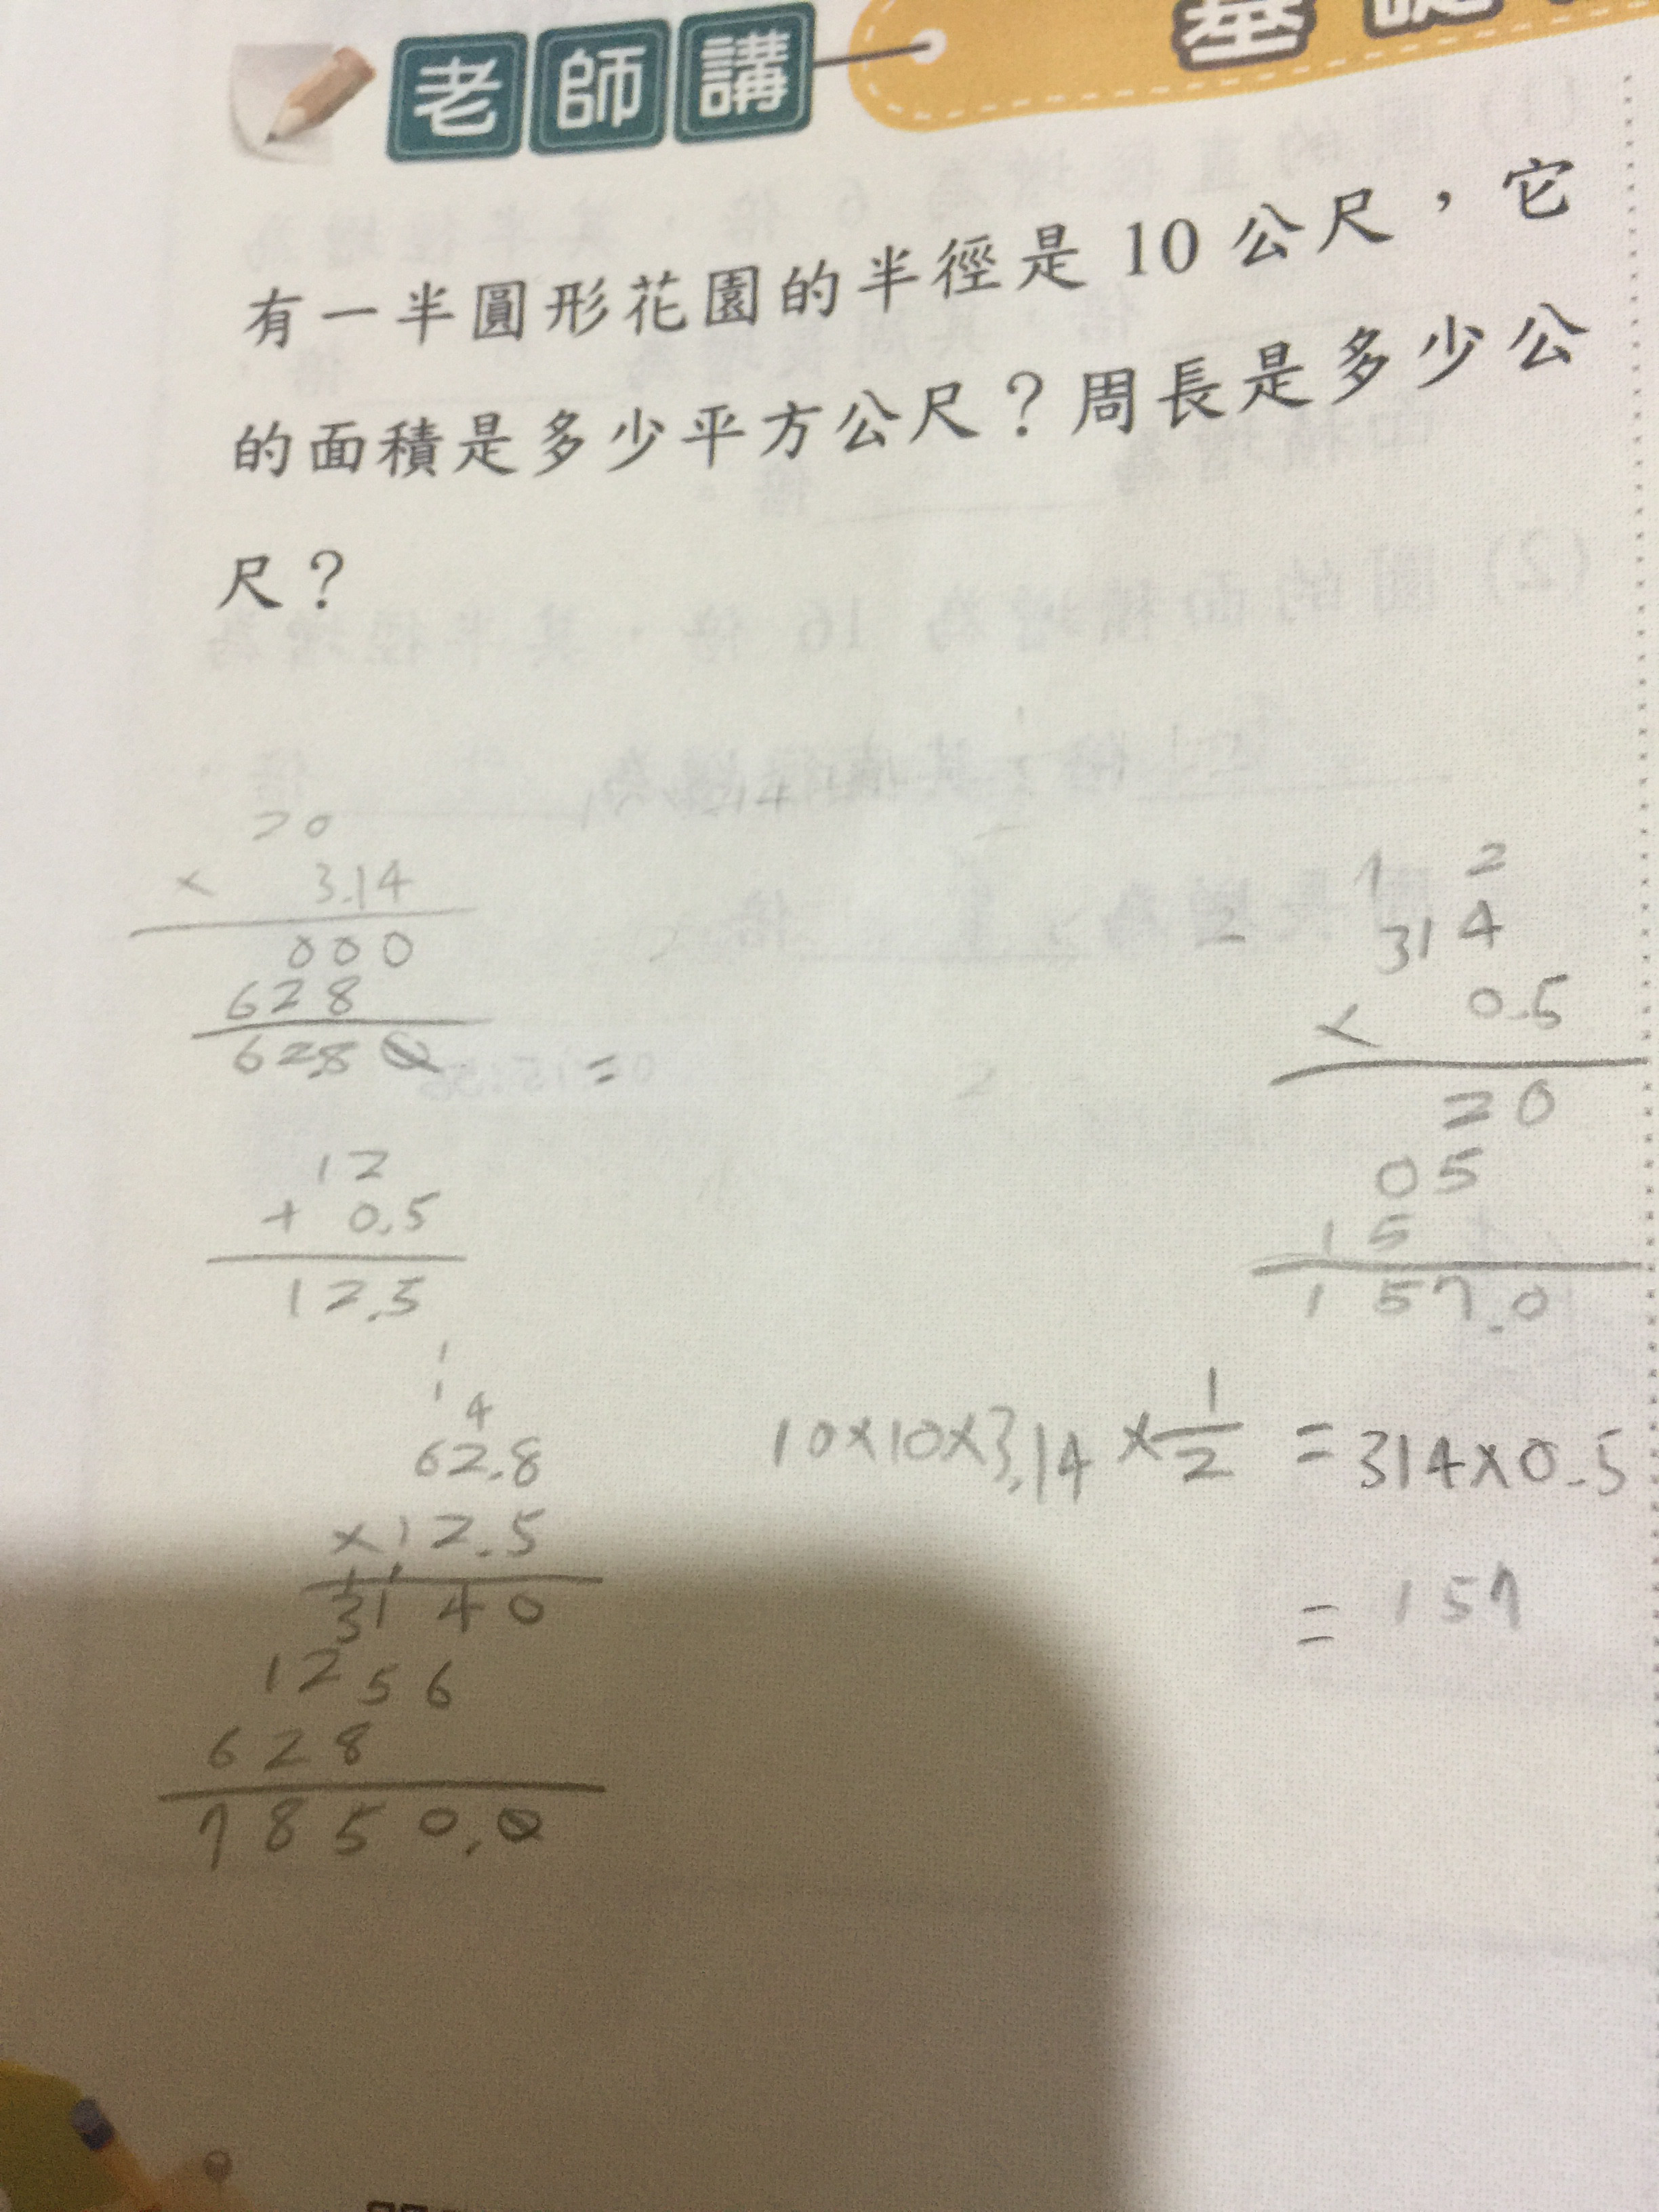 老師講
有一半圓形花園的半徑是 10 公尺，它
的面積是多少平方公尺？周長是多少公
尺？
20
× 3.14
000
628
62.80
=
12
+ 0.5
12.5
1
1
4
62.8
×12.5
3140
1256
628
7850.0
1 2
314
× 0.5
20
05
15
157.0
10×10×3.14×1/2 = 314×0.5
= 157